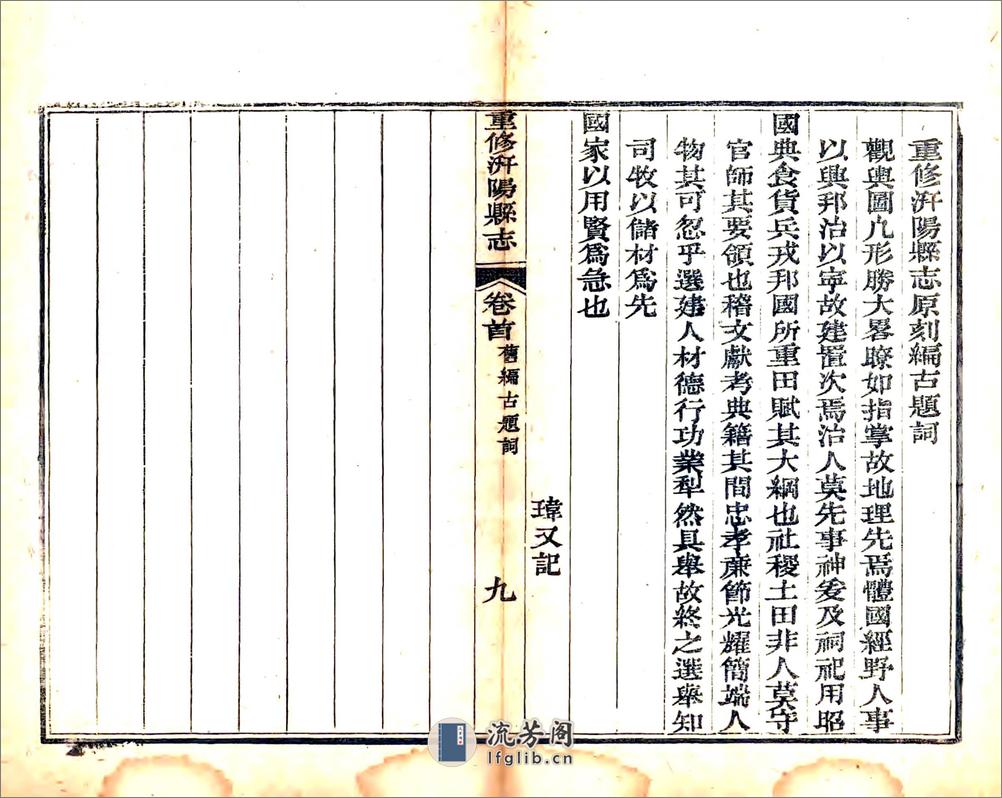 重修汧陽縣志原刻編古題詞
觀輿圖凡形勝大畧瞭如指掌故地理先焉體國經野人事
以興邦治以寧故建置次焉治人莫先事神爰及祠祀用昭
國典食貨兵戎邦國所重田賦其大綱也社稷土田非人莫守
官師其要領也稽文獻考典籍其間忠孝亷節光耀簡端人
物其可忽乎選建人材德行功業犁然具舉故終之選舉知
司牧以儲材爲先
國家以用賢爲急也
瑋又記
重修汧陽縣志 卷首 舊編古題詞 九
流芳阁
lfglib.cn